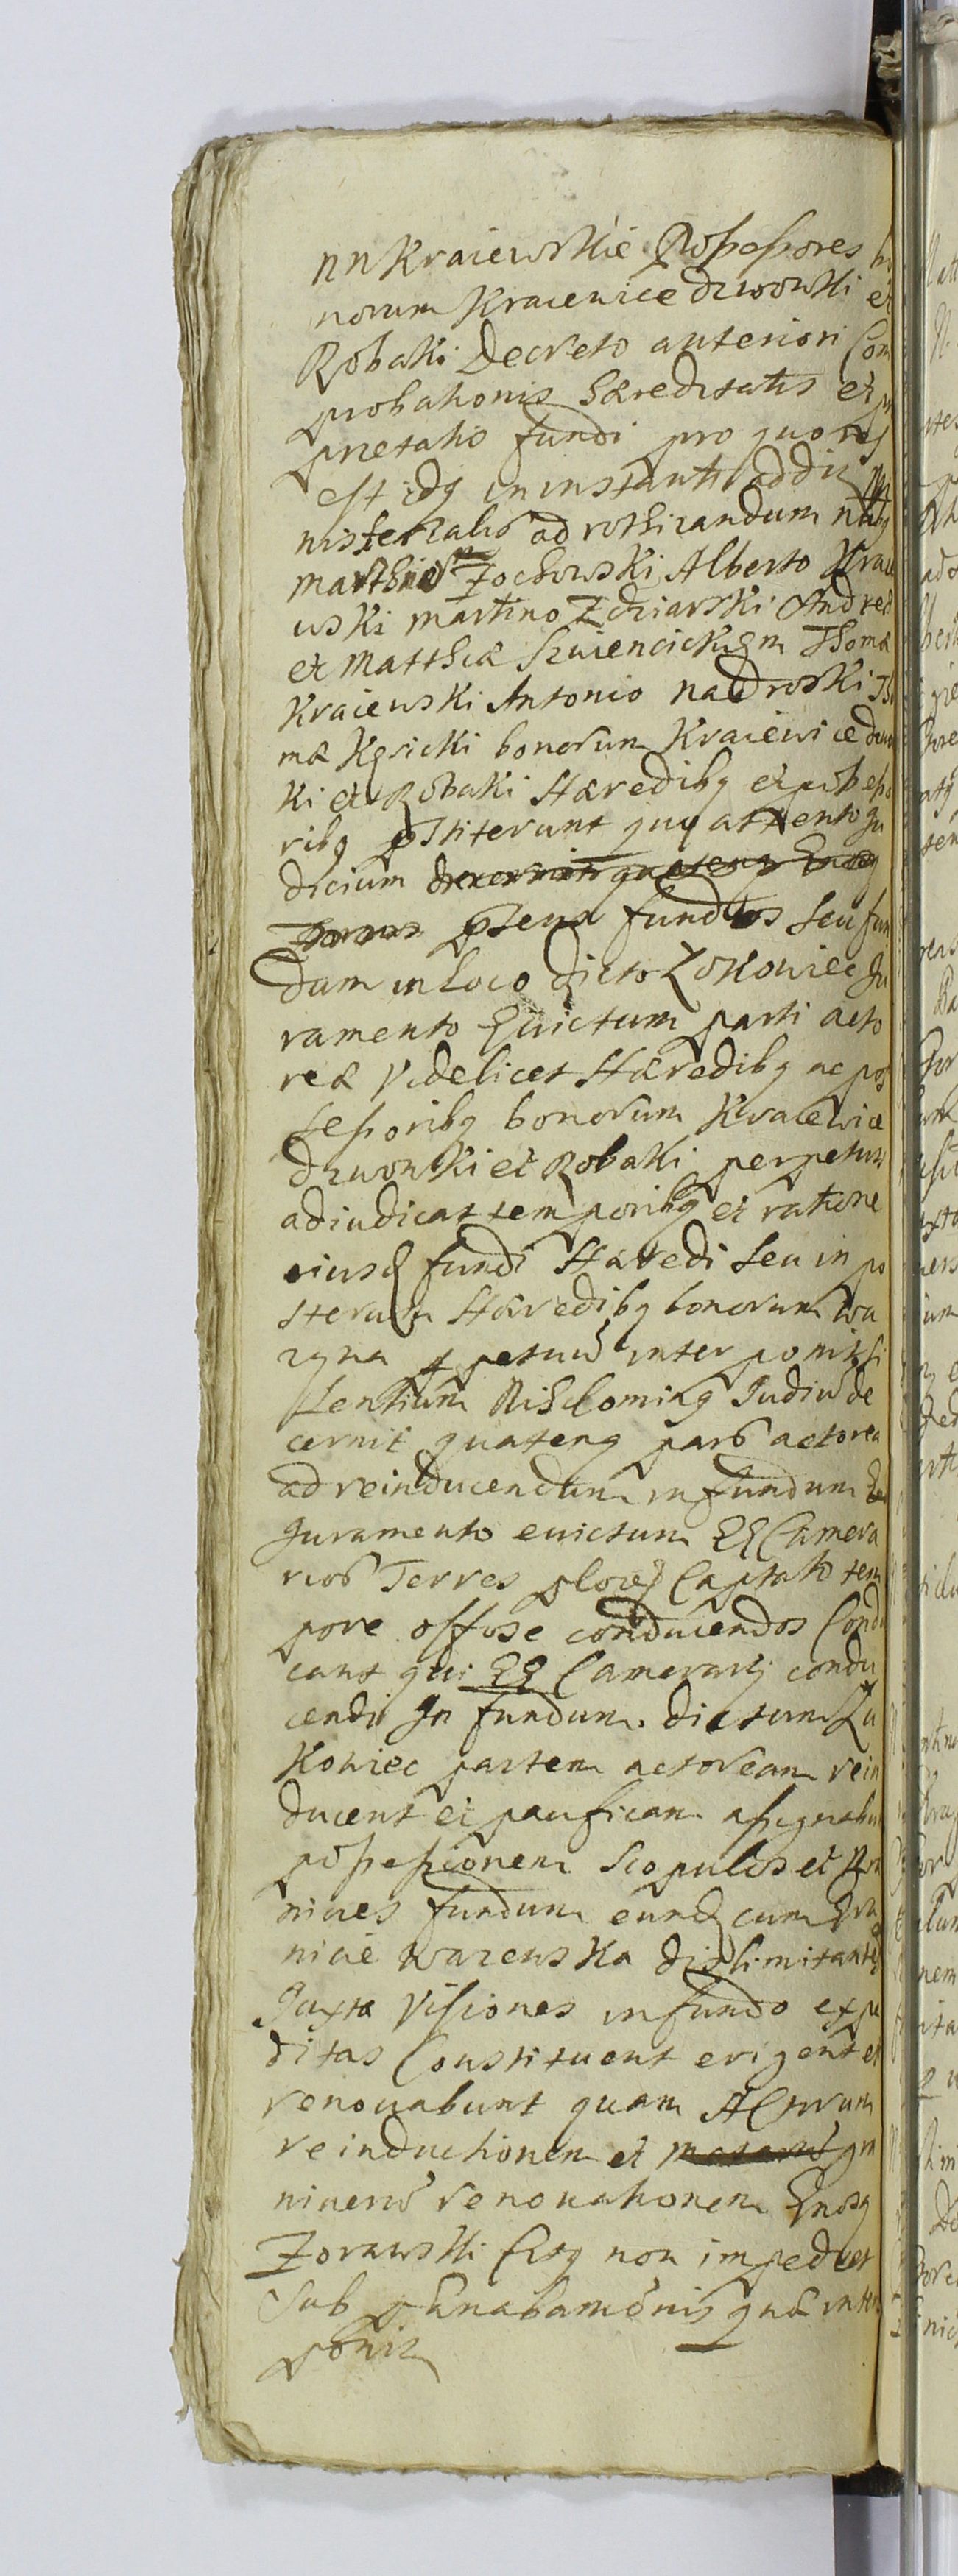 NN Kraiewskie Possessores bo
norum Kraiewice dzwonki et
Robaki Decreto anteriori Com
probationis Hæreditatis et
prietatis fundi pro quo
est idq in instanti addit
nisterialis ad rothizandum
Matthia Zochowski Alberto Kraie
wski Martino Zdziarski Andrea
et Matthia Szwiencickiem Thoma
Kraiewski Antonio Nadroski Th
ma Kęsicki bonorum Kraiewice dzwon
ki et Robaki Hæredibq et possesso
ribq pstiterunt quo attento Ju
dicium
fundus seu fun
dum in Loco dicto Lokowiec Ju
ramento Evictum parti acto
reæ Videlicet Hæredibq ac pos
sessoribq bonorum Kraiewice
dzwonki et Robaki perpetuis
adiudicat temporibq et ratione
eiusd fundi Hæredi seu in po
sterum Hæredibq bonorum Wa
rzna ppetuum interponit si
lentium Nihilominq Judium de
cernit quatenq pars actorea
ad reinducendum in fundum
Juramento evictum EE Camera
rios Terres ploc Captato tem
pore offose conducendos Condu
cant qui EE Camerarij condu
cendi In fundum dictum Lu
kowiec partem actoream rein
ducent et pacificam assignabun
possessionem Scopulos et Gra
nicies fundum eund cum Gra
nicie Warzewska dislimitantes
Juxta Visiones in fundo expe
ditas Constituent erigent et
renovabunt quam Actorum
reinductionem et gra
nicierum renovationem Gnosq
Zorawski Citq non impediet
Sub pæna bannionis qua inter
ponit